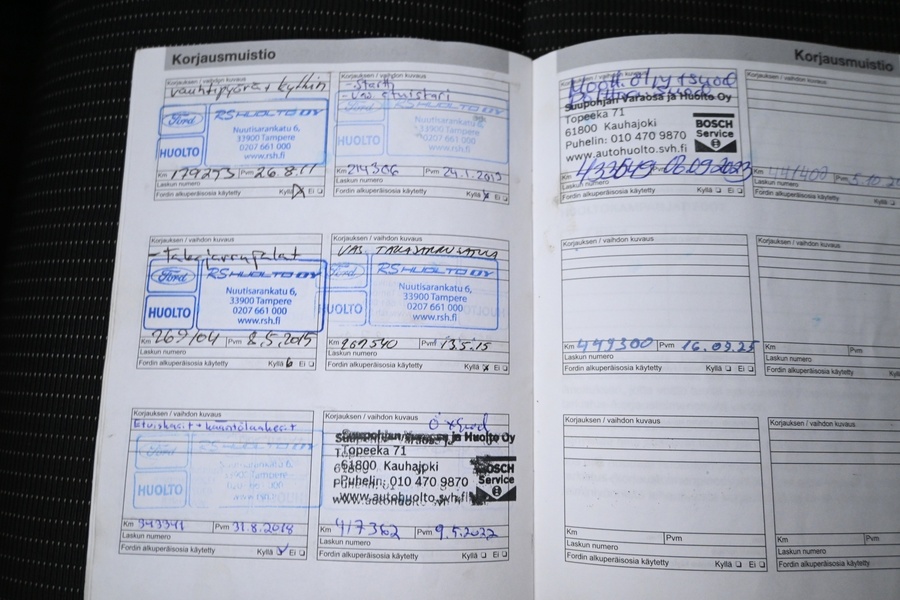 Korjausmuistio
Korjauksen / vaihdon kuvaus
vauhtipyörä + kytkin
Ford
RS HUOLTO OY
HUOLTO
Nuutisarankatu 6,
33900 Tampere
0207 661 000
www.rsh.fi
Km 179293 Pvm 26.8.11
Laskun numero
Fordin alkuperäisosia käytetty Kyllä Ei
Korjauksen / vaihdon kuvaus
- startti
- vas. etuistari
Ford
RS HUOLTO OY
HUOLTO
Nuutisarankatu 6,
33900 Tampere
0207 661 000
www.rsh.fi
Km 214306 Pvm 24.1.2013
Laskun numero
Fordin alkuperäisosia käytetty Kyllä Ei
Korjauksen / vaihdon kuvaus
- takajarrupalat
Ford
RS HUOLTO OY
HUOLTO
Nuutisarankatu 6,
33900 Tampere
0207 661 000
www.rsh.fi
Km 269104 Pvm 8.5.2015
Laskun numero
Fordin alkuperäisosia käytetty Kyllä Ei
Korjauksen / vaihdon kuvaus
VAS. TAKAJARRUSATULA
Ford
RS HUOLTO OY
HUOLTO
Nuutisarankatu 6,
33900 Tampere
0207 661 000
www.rsh.fi
Km 269540 Pvm 13.5.15
Laskun numero
Fordin alkuperäisosia käytetty Kyllä Ei
Korjauksen / vaihdon kuvaus
Ford
RS HUOLTO OY
HUOLTO
Nuutisarankatu 6,
33900 Tampere
Km 343341 Pvm 31.8.2018
Laskun numero
Fordin alkuperäisosia käytetty Kyllä Ei
Korjauksen / vaihdon kuvaus
Suupohjan Varaosa ja Huolto Oy
Topeeka 71
61800 Kauhajoki
Puhelin: 010 470 9870
www.autohuolto.svh.fi
BOSCH
Service
Km 417362 Pvm 9.5.2022
Laskun numero
Fordin alkuperäisosia käytetty Kyllä Ei
Korjausmuistio
Suupohjan Varaosa ja Huolto Oy
Topeeka 71
61800 Kauhajoki
Puhelin: 010 470 9870
www.autohuolto.svh.fi
BOSCH
Service
Km 433649 Pvm 08.09.2023
Laskun numero
Fordin alkuperäisosia käytetty Kyllä Ei
Korjauksen / vaihdon kuvaus
Km 441400 Pvm
Laskun numero
Fordin alkuperäisosia käytetty
Korjauksen / vaihdon kuvaus
Km 449300 Pvm 16.09.25
Laskun numero
Fordin alkuperäisosia käytetty Kyllä Ei
Korjauksen / vaihdon kuvaus
Km Pvm
Laskun numero
Fordin alkuperäisosia käytetty
Korjauksen / vaihdon kuvaus
Km Pvm
Laskun numero
Fordin alkuperäisosia käytetty Kyllä Ei
Korjauksen / vaihdon kuvaus
Km Pvm
Laskun numero
Fordin alkuperäisosia käytetty